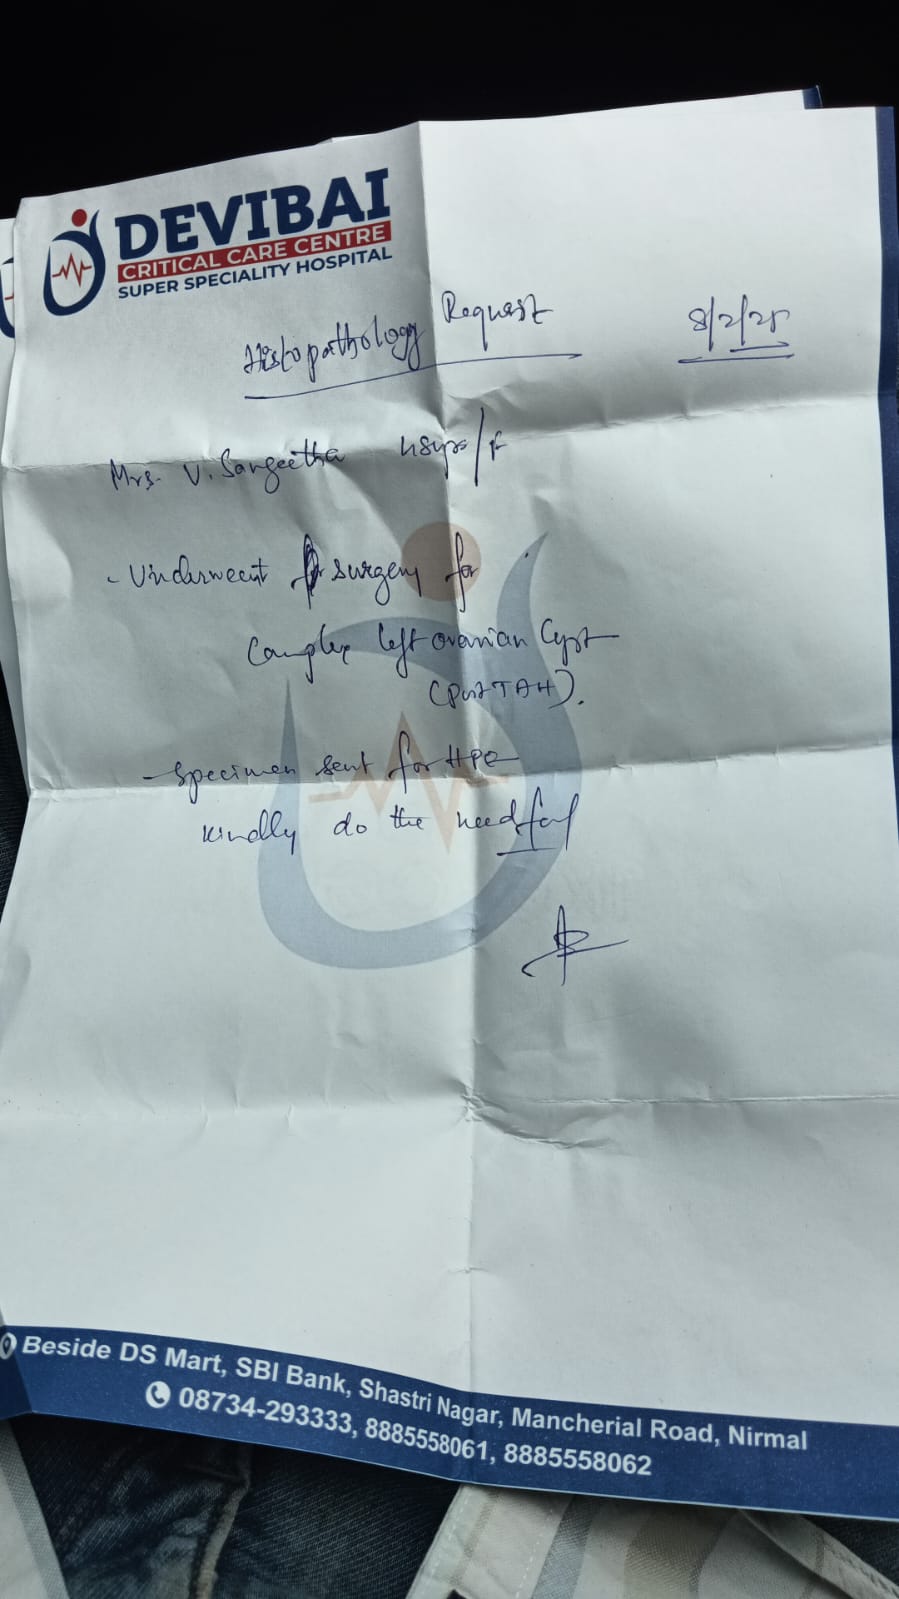 DEVIBAI
CRITICAL CARE CENTRE
SUPER SPECIALITY HOSPITAL
Histopathology Request 8/2/25
Mrs. V. Sangeetha 45yrs/F
- Underwent surgery for
Complex left ovarian Cyst
(Post TAH).
- Specimen sent for HPE
Kindly do the needful
Beside DS Mart, SBI Bank, Shastri Nagar, Mancherial Road, Nirmal
08734-293333, 8885558061, 8885558062